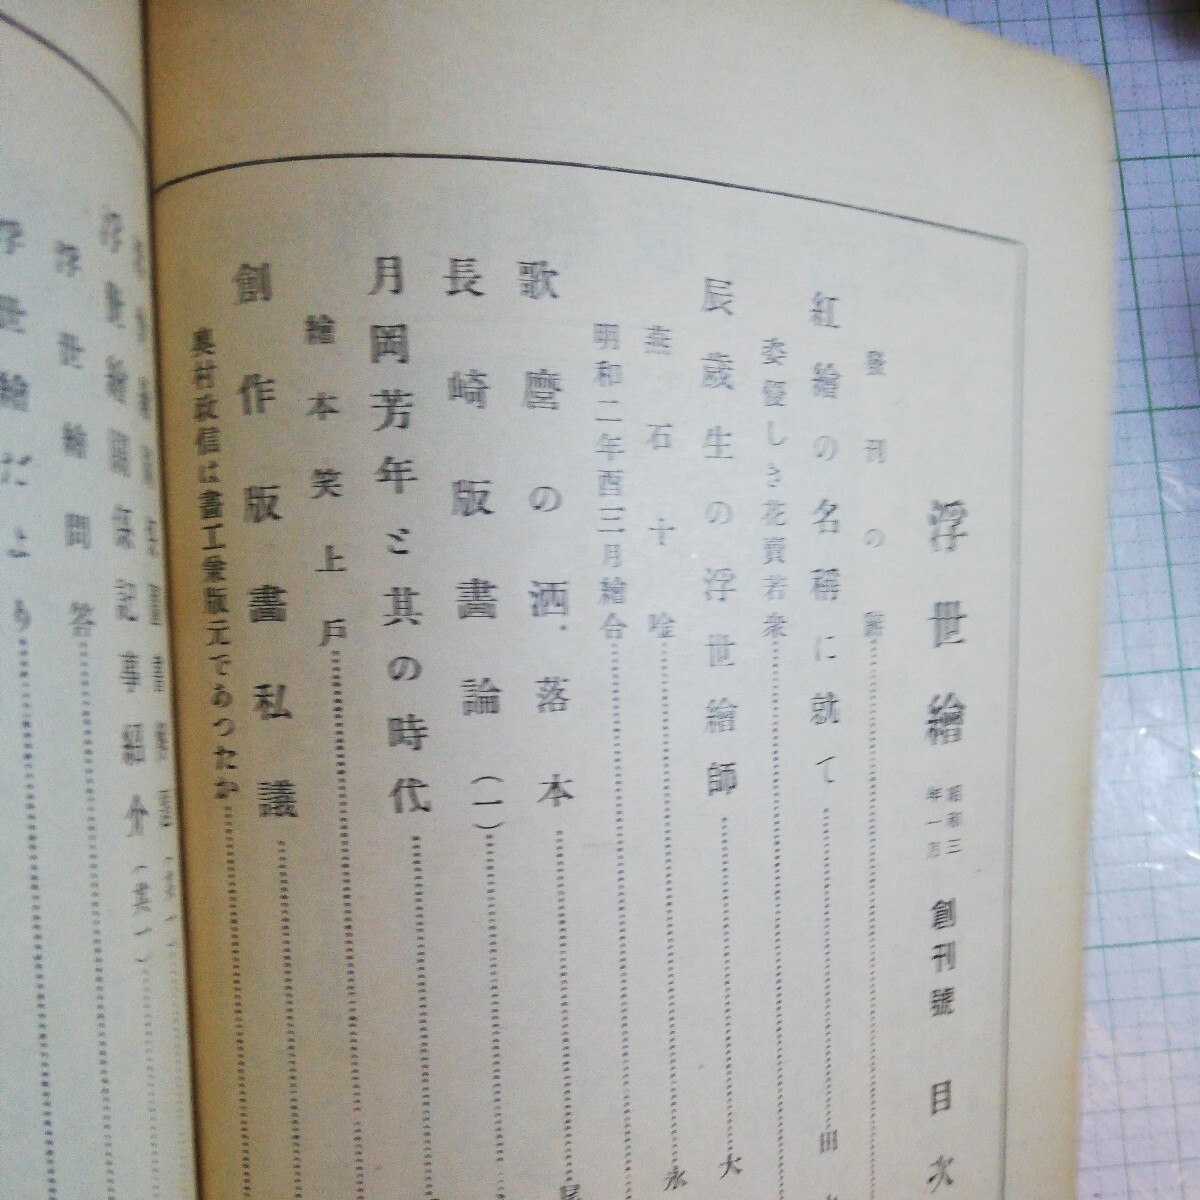 浮世繪 昭和三年一月 創刊號 目次
發刊の辭
紅繪の名稱に就て 田
委優しき花賣若衆
辰歲生の浮世繪師 大
燕石十唸 永
明和二年酉三月繪合
歌麿の洒落本 尾
長崎版畵論(一)
月岡芳年と其の時代
繪本笑上戶
創作版畵私議
奥村政信は畵工兼版元であつたか
浮世繪關係記事紹介(其一)
浮世繪問答
浮世繪だより